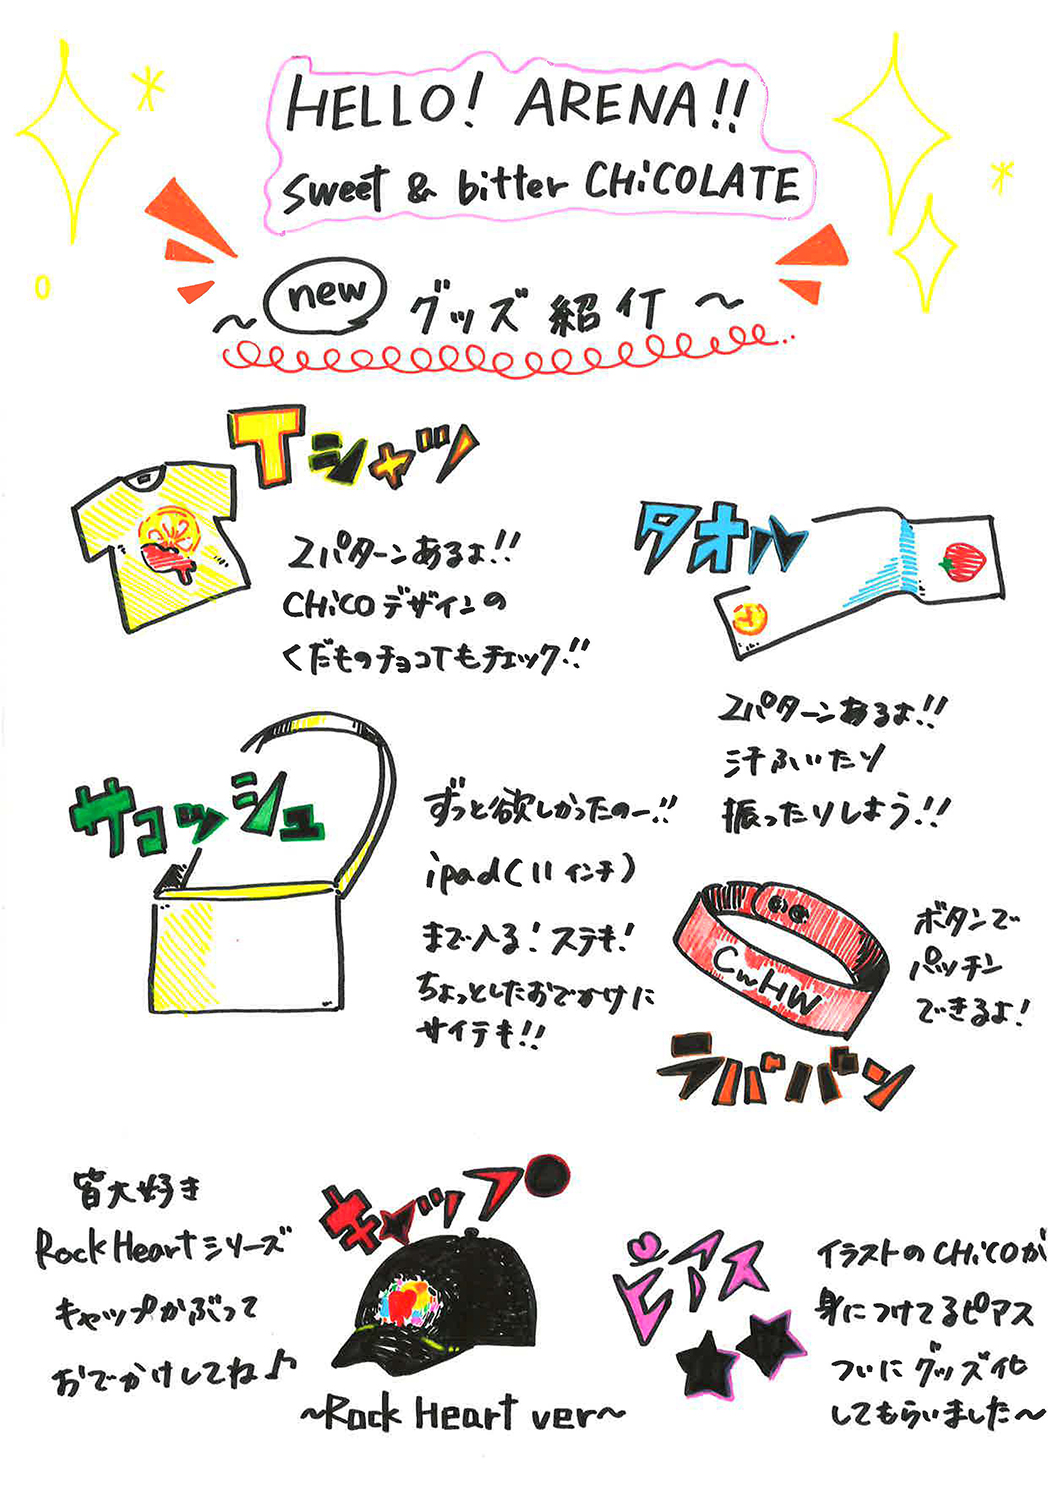 HELLO! ARENA!!
sweet & bitter CHiCOLATE
~ new グッズ紹介 ~
Tシャツ
2パターンあるよ!!
CHiCOデザインの
くだものチョコTもチェック!!
タオル
2パターンあるよ!!
汗ふいたり
振ったりしよう!!
サコッシュ
ずっと欲しかったのー!!
ipad(11インチ)
まで入る!ステキ!
ちょっとしたおでかけに
サイテキ!!
CwHW
ボタンで
パッチン
できるよ!
ラババン
皆大好き
Rock Heartシリーズ
キャップかぶって
おでかけしてね♪
キャップ
~Rock Heart ver~
ピアス
イラストのCHiCOが
身につけてるピアス
ついにグッズ化
してもらいました~